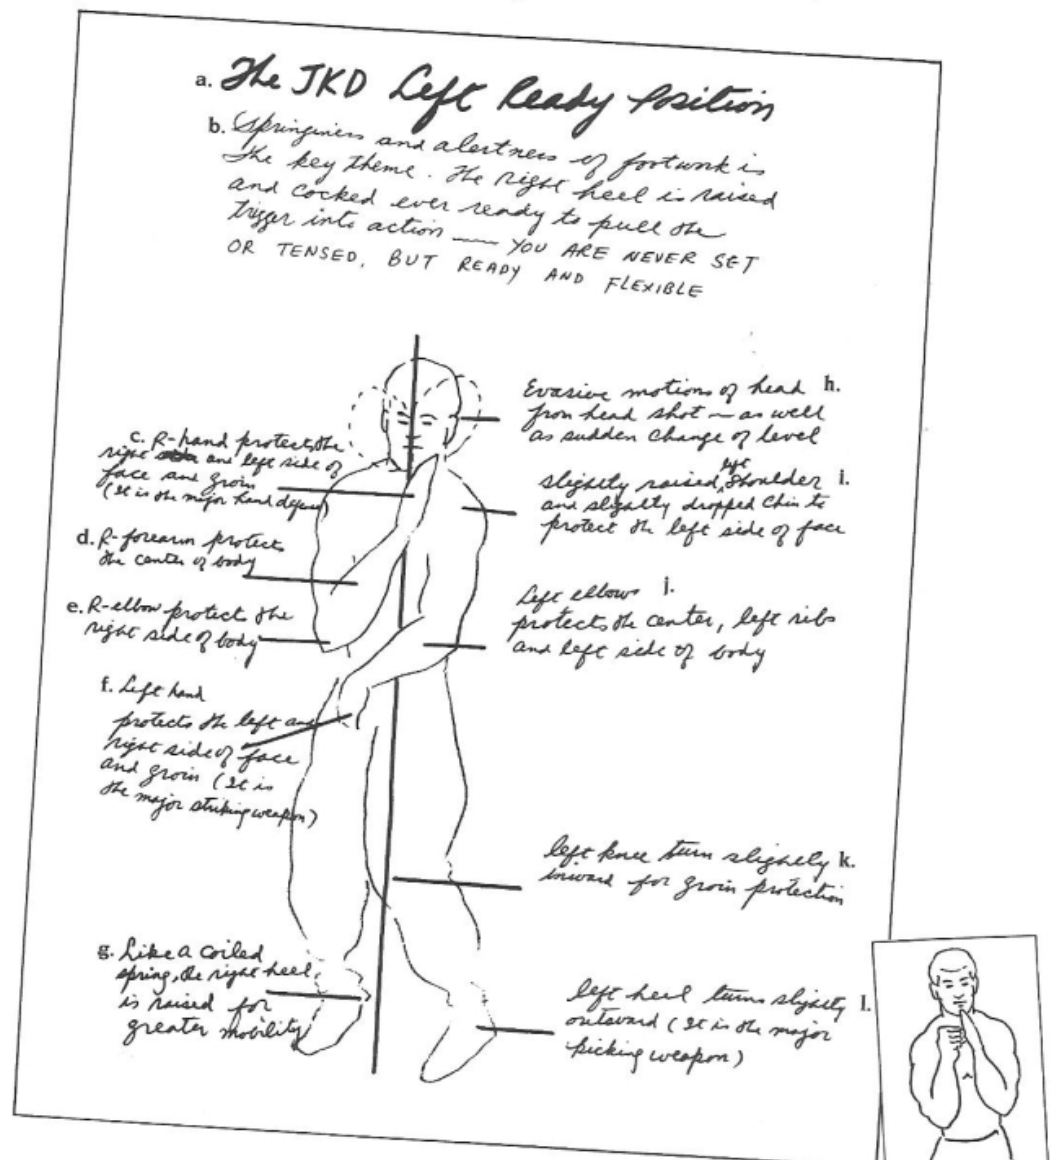 a. The JKD Left Ready Position
b. Springiness and alertness of footwork is
the key theme. The right heel is raised
and cocked ever ready to pull the
trigger into action — YOU ARE NEVER SET
OR TENSED, BUT READY AND FLEXIBLE
c. R-hand protects the
right and left side of
face and groin
(It is the major hand defense)
d. R-forearm protects
the center of body
e. R-elbow protect the
right side of body
f. Left hand
protects the left and
right side of face
and groin (It is
the major striking weapon)
g. Like a coiled
spring, the right heel
is raised for
greater mobility
Evasive motions of head h.
from head shot — as well
as sudden change of level
slightly raised left shoulder i.
and slightly dropped chin to
protect the left side of face
Left elbows j.
protects the center, left ribs
and left side of body
left knee turn slightly k.
inward for groin protection
left heel turns slightly l.
outward (It is the major
kicking weapon)